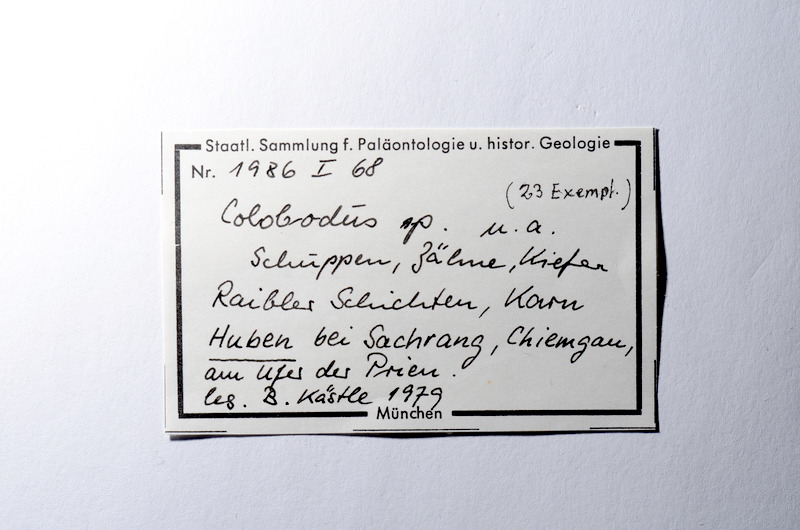 Staatl. Sammlung f. Paläontologie u. histor. Geologie
Nr. 1986 I 68
(23 Exempl.)
Colobodus sp. u. a.
Schuppen, Zähne, Kiefer
Raibler Schichten, Karn
Huben bei Sachrang, Chiemgau,
am Ufer der Prien.
leg. B. Kästle 1979
München